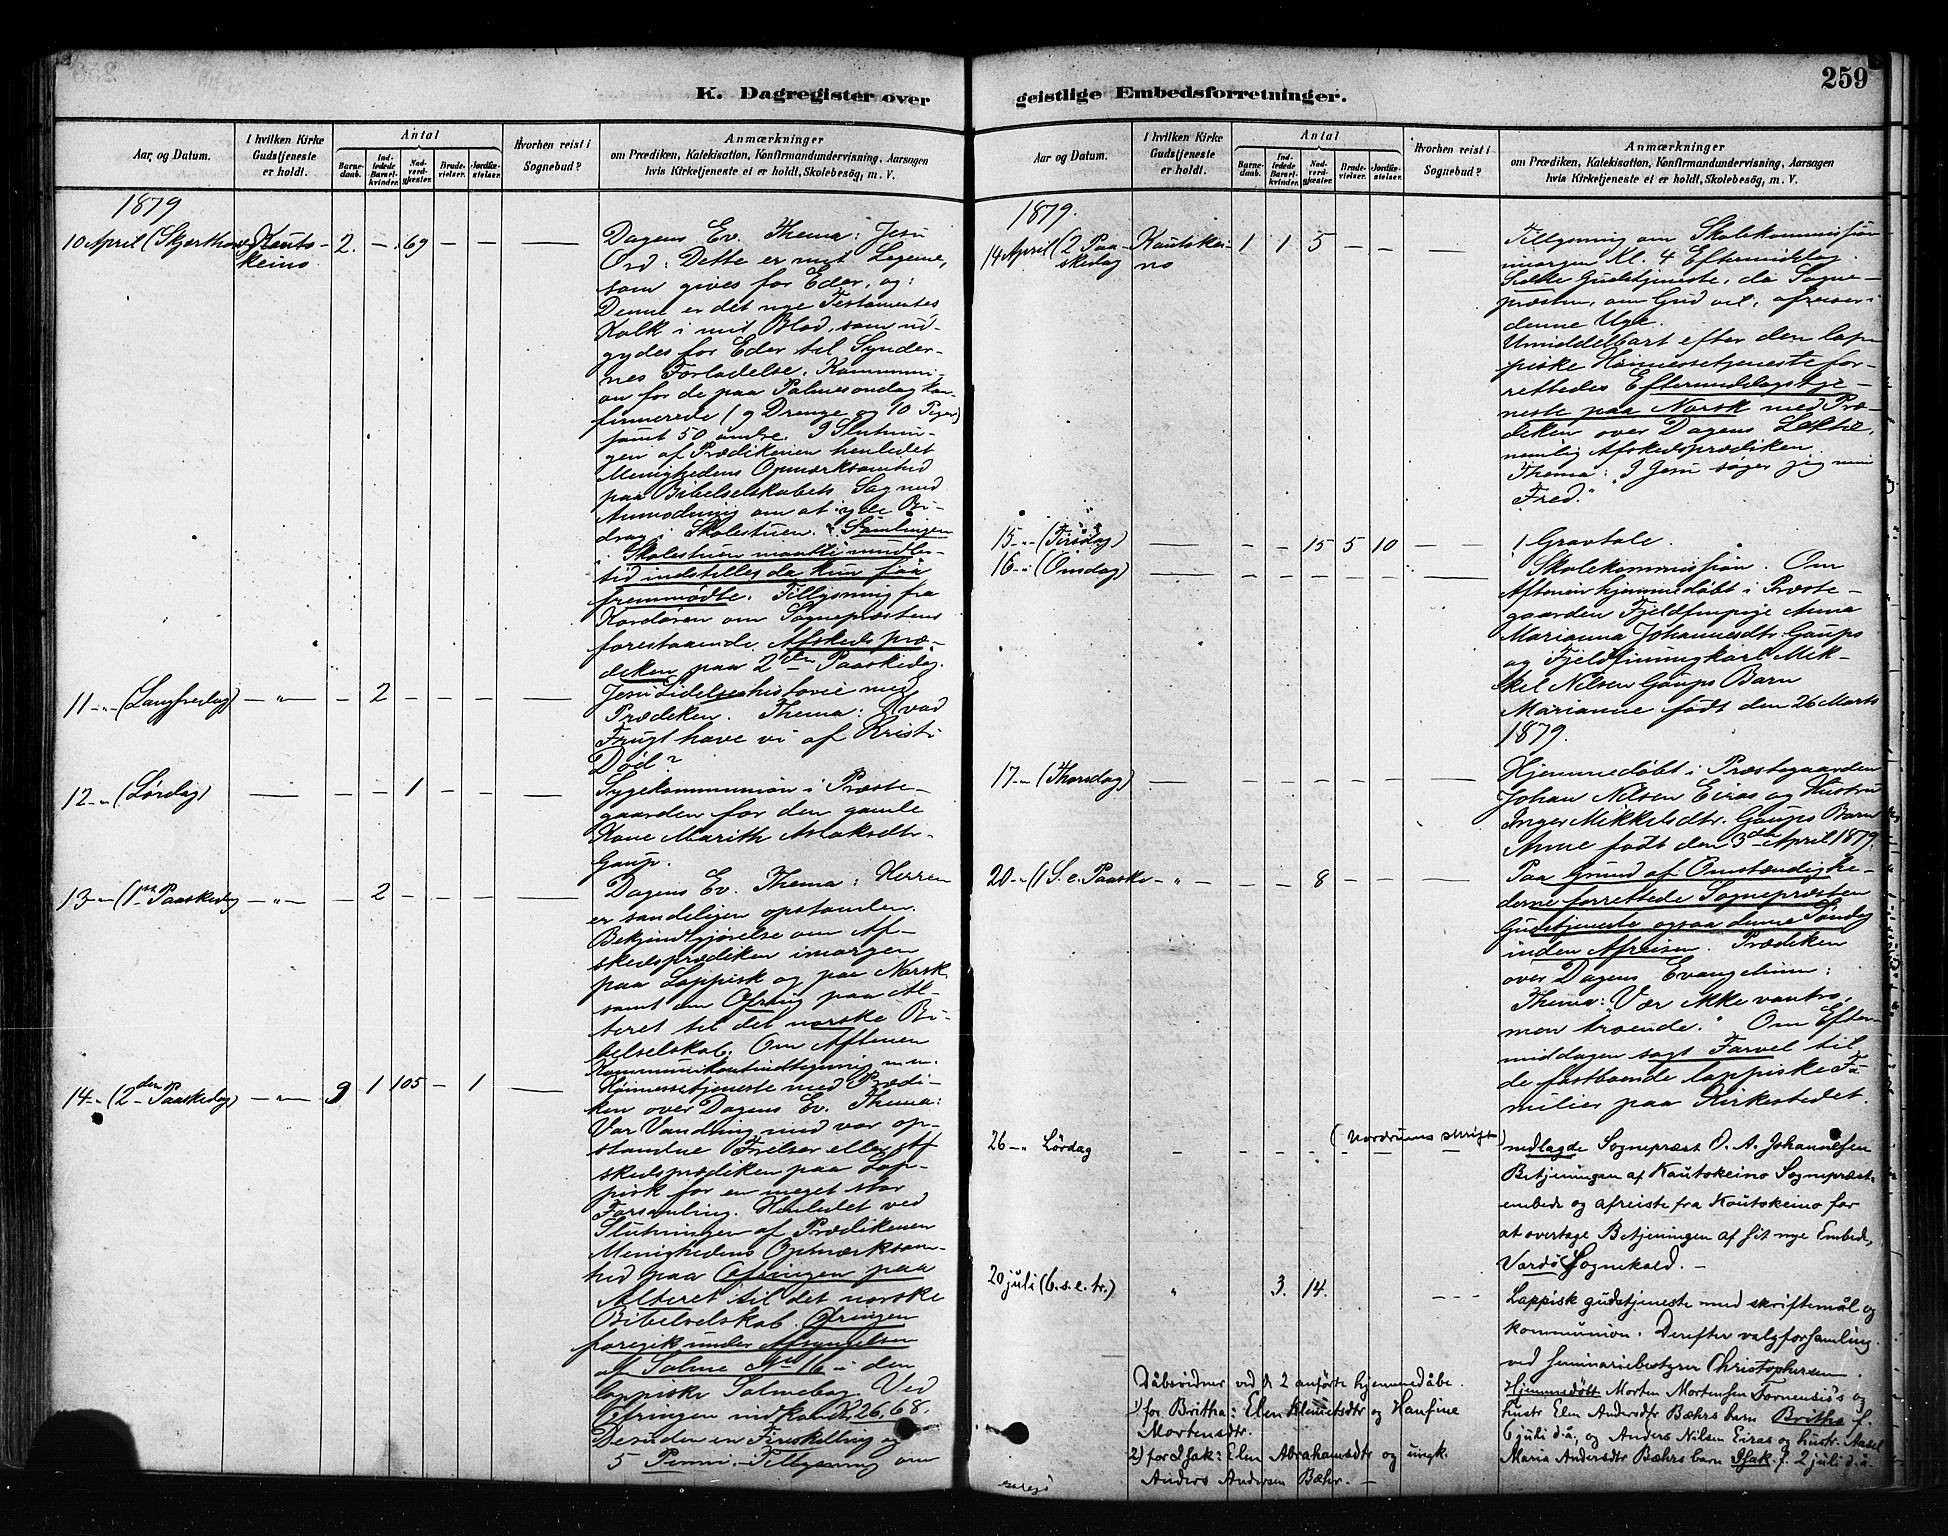 K. Dagregister over
Aar, og Datum.
I hvilken Kirke Gudstjeneste er holdt.
Antal
Barne-daab.
Ind-ledede Barsel-kvinder.
Nad-verd-gjester.
Brude-vielser.
Jordfæ-stelser.
Hvorhen reist i Sognebud?
Anmærkninger
om Prædiken, Katekisation, Konfirmandundervisning, Aarsagen
hvis Kirketjeneste ei er holdt, Skolebesøg, m. V.
1879
10 April (Skjærthors) Kauto- 2. — 69 — — — Dagens Ev. Thema: Jesu
keino. Ord: Dette er mit Legeme,
som gives for Eder, og:
Denne er det nye Testamentes
Kalk i mit Blod, som ud-
gydes for Eder til Synder-
nes Forladelse. Kommuni-
on for de paa Palmesøndag kon-
firmerede (9 Drenge og 10 Piger)
samt 50 andre. I Slutnin-
gen af Prædikenen henledet
Menighedens Opmærksomhed
paa Bibelselskabets Sag med
Anmodning om at yde Bi-
drag i Skolestuen. Samlingen
i Skolestuen maatte imidler-
tid indstilles da kun faa
fremmødte. Tillysning fra
Kordøren om Sognepræstens
forestaaende Afskedspræ-
deken paa 2den Paaskedag.
11 -"- (Langfredag) — " — — 2 — — — — Jesu Lidelseshistorie med
Prædeken. Thema: Hvad
Frugt have vi af Kristi
Død?
12 -"- (Lørdag) — — — 1 — — — Sygekommunion i Præste-
gaarden for den gamle
Kone Marith Aslaksdtr.
Gaup.
13 -"- (1ste Paaskedag — " — — 2 — — — — Dagens Ev. Thema: Herren
er sandeligen opstanden.
Bekjendtgjørelse om Af-
skedsprædiken imorgen
paa Lappisk og paa Norsk
samt om Ofring paa Al-
teret til det norske Bi-
belselskab. Om Aftenen
Kommunikantindtegning m.m.
14 -"- (2den Paaskedag) — " — 9 1 105 — 1 — Høimessetjeneste med Prædi-
ken over Dagens Ev. Thema:
Vor Vandring med vor op-
standne Frelser eller Af-
skedsprædiken paa Lap-
pisk for en meget stor
Forsamling. Henledet ved
Slutningen af Prædikenen
Menighedens Opmærksom-
hed paa Ofringen paa
Alteret til det norske
Bibelselskab. Ofringen
foregik under Afsyngelsen
af Salme No 16 i den
lappiske Salmebog. Ved
Ofringen indkom Kr 26,68.
Desuden en Fireskilling og
5 Penni. Tillysning om
geistlige Embedsforretninger.
259
Aar og Datum.
I hvilken Kirke Gudstjeneste er holdt.
Antal
Barne-daab.
Ind-ledede Barsel-kvinder.
Nad-verd-gjester.
Brude-vielser.
Jordfæ-stelser.
Hvorhen reist i Sognebud?
Anmærkninger
om Prædiken, Katekisation, Konfirmandundervisning, Aarsagen
hvis Kirketjeneste ei er holdt, Skolebesøg, m. V.
1879.
14 April (2 Paa- Kautokei- 1 1 5 — — — Tillysning om Skolekommission
skedag no imorgen Kl. 4 Eftermiddag.
Gudstjeneste, da Sogne-
præsten, om Gud vil, afreiser i
denne Uge.
Umiddelbart efter den lap-
piske Høimessetjeneste for-
rettedes Eftermiddagstje-
neste paa Norsk med Præ-
deken over Dagens Lektie,
nemlig Afskedsprædiken.
Thema: "I Jesu søger jeg min
Fred."
15 -"- (Tirsdag) — — — 15 5 10 — 1 Gravtale.
16 -"- (Onsdag) — — — — — — — Skolekommission. Om
Aftenen hjemmedøbt i Præste-
gaarden Fjeldfinpige Anna
Marianna Johannesdtr Gaups
og Fjeldfinungkarl Mik-
kel Nilsen Gaups Barn
Marianne født den 26 Marts
1879.
17 -"- (Thorsdag) — — — — — — — Hjemmedøbt i Præstegaarden
Johan Nilsen Eiras og Hustru
Inger Mikkelsdtr. Gaups Barn
Anne født den 3die April 1879.
20 -"- (1 S. e. Paaske — " — — — 8 — — — Paa Grund af Omstændighe-
derne forrettede Sognepræsten
Gudstjeneste ogsaa denne Søndag
inden Afreisen. Prædeken
over Dagens Evangelium:
Thema: "Vær ikke vantro,
men troende." Om Efter-
middagen sagt Farvel til
de fastboende lappiske Fa-
milier paa Kirkestedet.
(Nordrums skrift)
26 -"- Lørdag - - - - - - nedlagde Sognepræst O. A. Johannesen
Betjeningen af Kautokeino Sognepræst-
embede og afreiste fra Kautokeino for
at overtage Betjeningen af sit nye Embede,
Vardø Sognekald. —
20 juli (6. s. e. tr.) " 3. 14. - - - Lappisk gudstjeneste med skriftemål og
kommunion. Derefter valgforsamling
ved seminariebestyrer Christophersen.
Hjemmedøbt Morten Mortensen Tornensis's og
hustr Elen Andersdtr Bæhrs barn Britha f.
6 juli d.å, og Anders Nilsen Eiras og hustr. Aasel
Maria Andersdtr Bæhrs barn Isak f. 2 juli d.å.
Dåbsvidner ved de 2 anførte hjemmedåbe.
1) for Britha: Elen Klemetsdtr og Hansine
Mortensdtr.
2) for Isak: Elen Abrahamsdtr og ungk.
Anders Andersen Bæhr. —